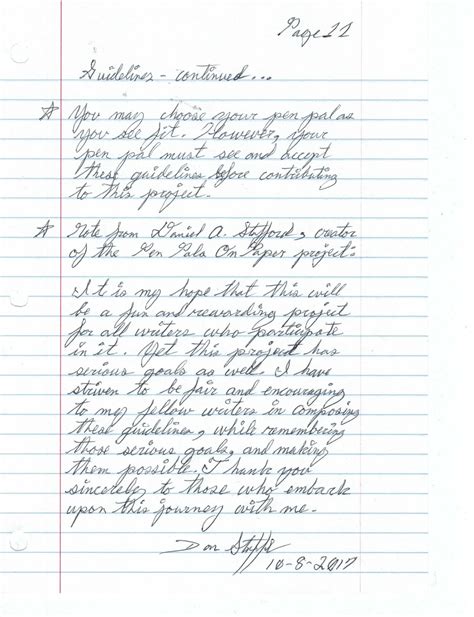 Page 11
Guidelines - continued...
☆ You may choose your pen pal as
you see fit. However, your
pen pal must see and accept
these guidelines before contributing
to this project.
☆ Note from Daniel A. Stafford, creator
of the Pen Pals On Paper project:
It is my hope that this will
be a fun and rewarding project
for all writers who participate
in it. Yet this project has
serious goals as well. I have
striven to be fair and encouraging
to my fellow writers in composing
these guidelines, while remembering
those serious goals, and making
them possible. I thank you
sincerely to those who embark
upon this journey with me.
Dan
10-8-2017